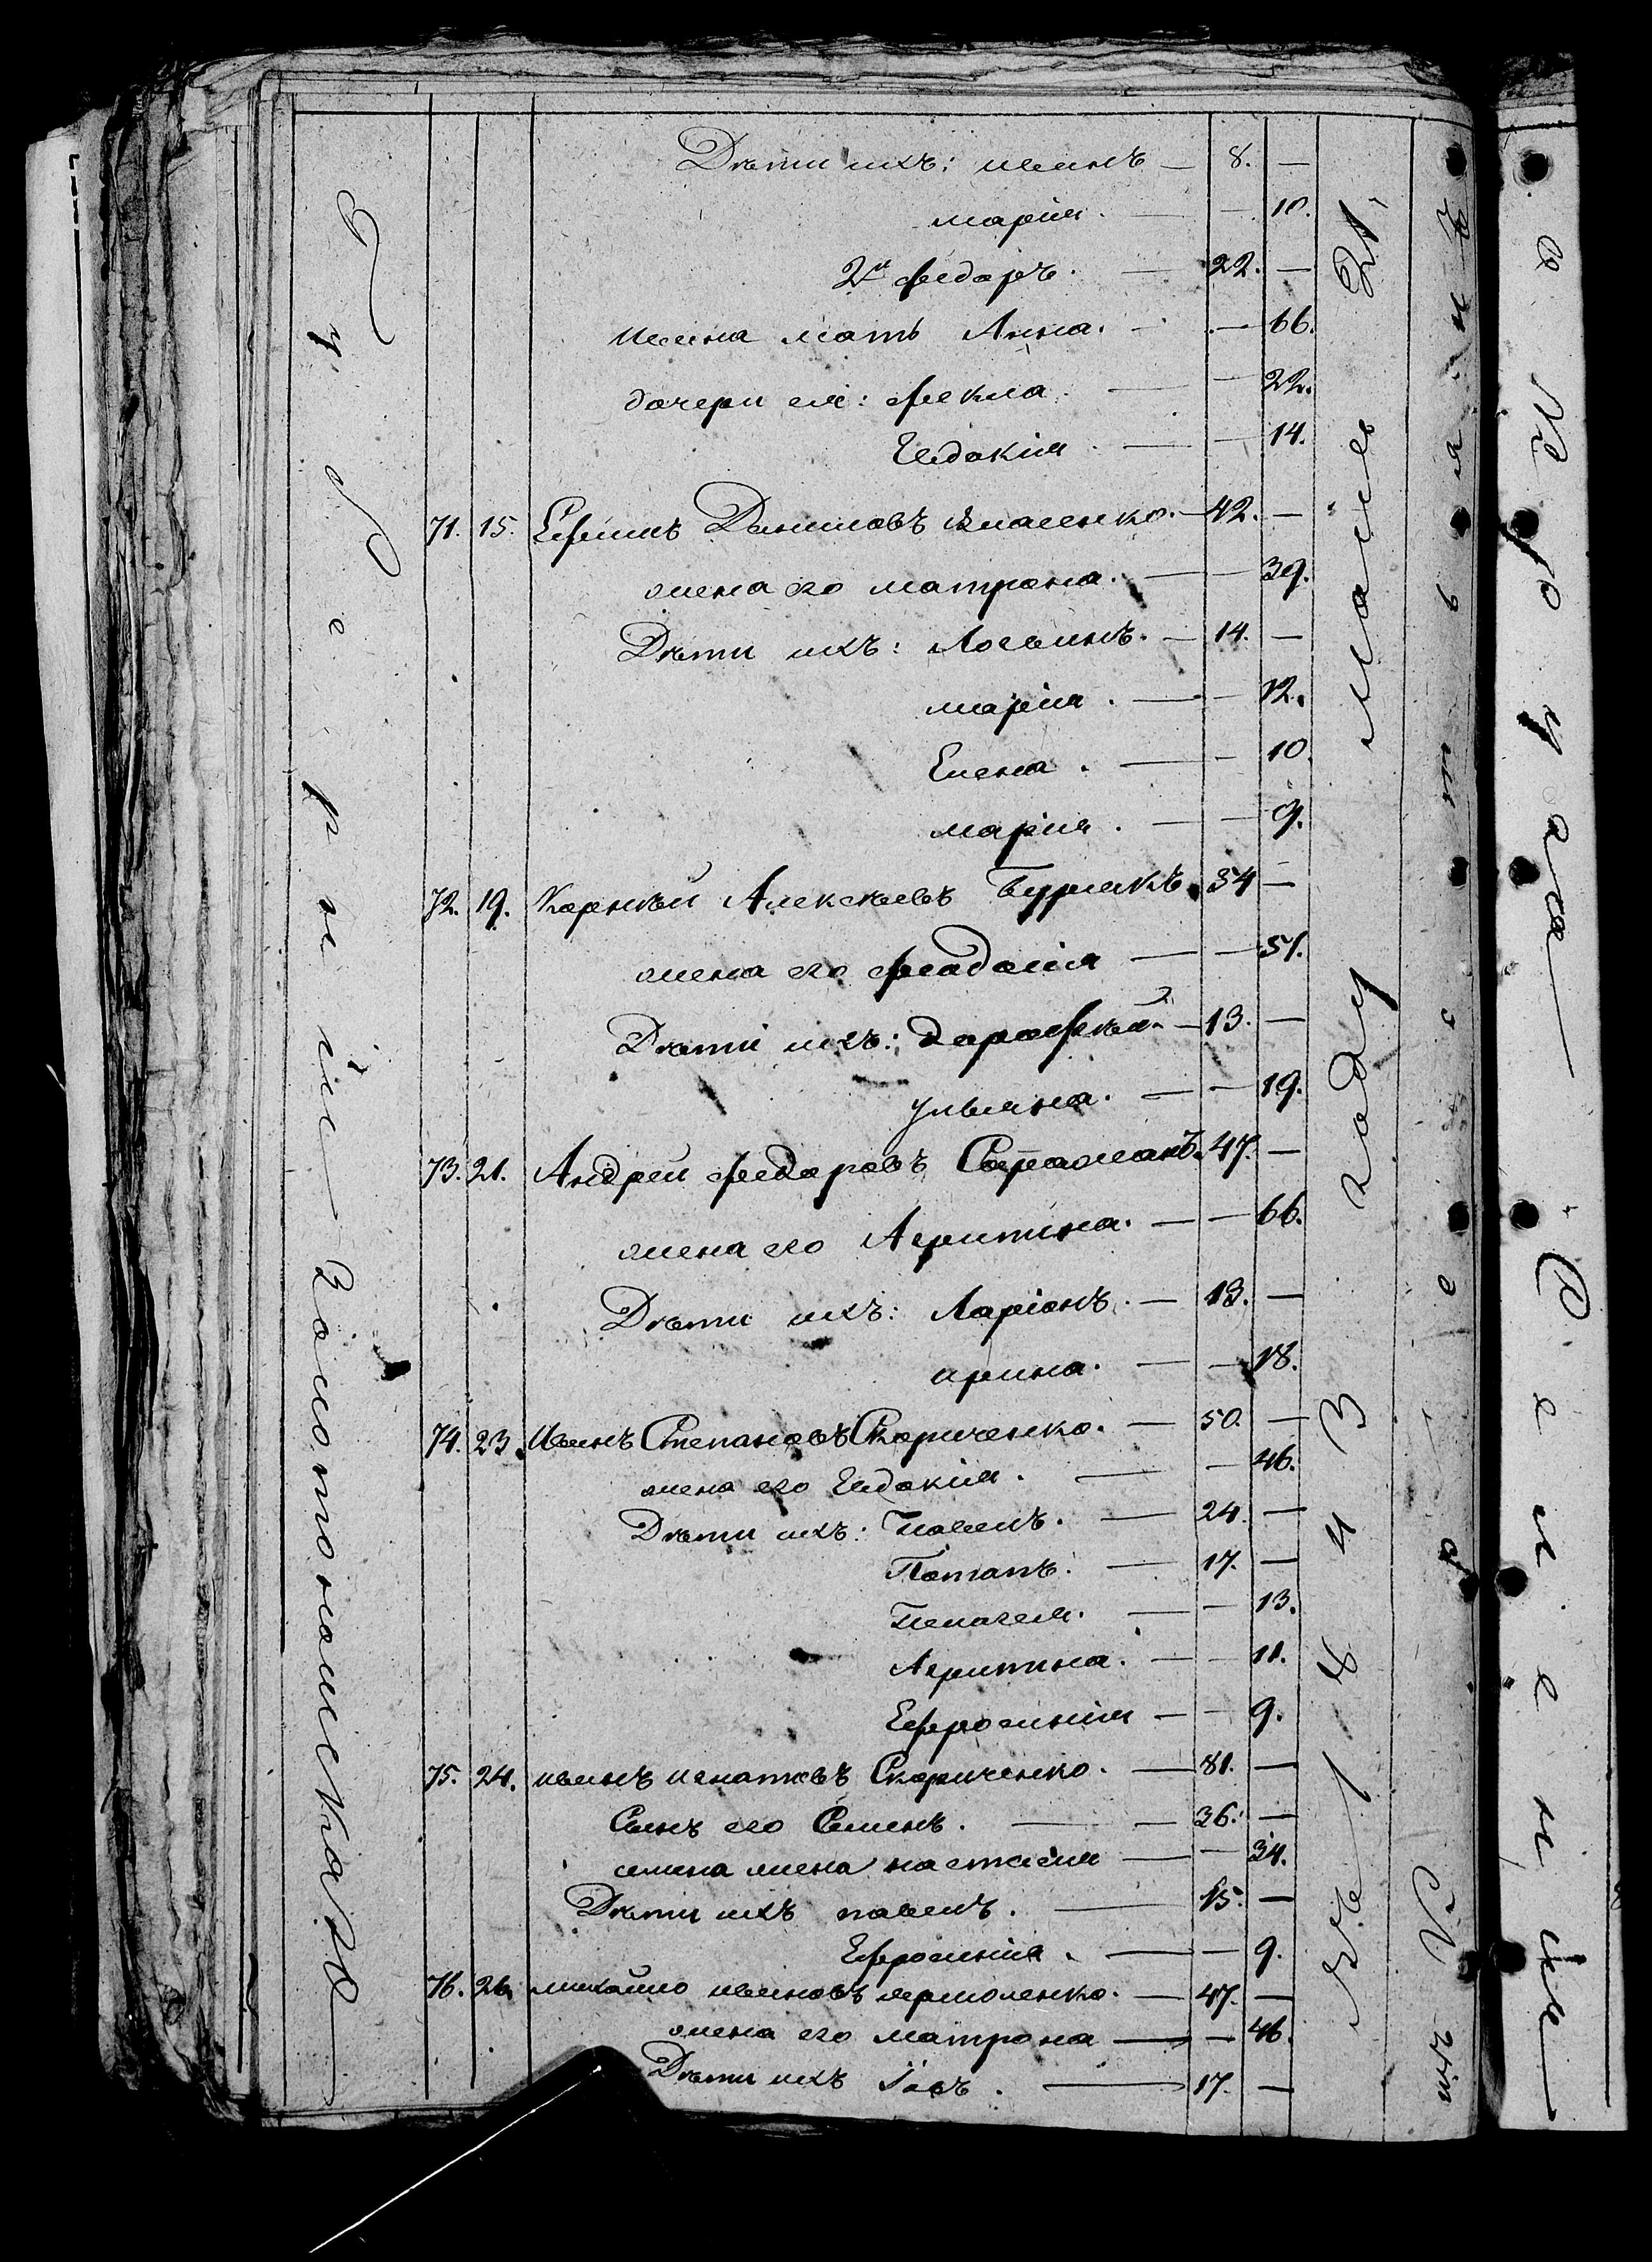 Дѣти ихъ: иванъ — 8. —
марія. — — 10.
2й федоръ. — 22. —
ивана мать Анна. — — 66.
дочери ея: фекла. — — 22.
Евдокія. — — 14.
71. 15. Ефимъ Даниловъ Власенко. — 42. —
жена его матрона. — — 39.
Дѣти ихъ: Логвинъ. — 14. —
марія. — — 12.
Елена. — — 10.
марія. — — 9.
72. 19. Корнѣй Алексѣевъ Бурлакъ. 54 —
жена его феодосія — — 51.
Дѣти ихъ: дорофѣй. — 13. —
ульяна. — — 19.
73. 21. Андрей федоровъ 47. —
жена его Агрипина. — — 66.
Дѣти ихъ: Ларіонъ. — 13. —
ирина. — — 18.
74. 23. Иванъ Степановъ Скориченко. — 50. —
жена его Евдокія. — — 46.
Дѣти ихъ: павелъ. — 24. —
Потапъ. — 17. —
пелагея. — — 13.
Агрипина. — — 11.
Ефросинія — — 9.
75. 24. иванъ игнатовъ Скориченко. — 81. —
Сынъ его Семенъ. — 36. —
семена жена настасія — — 34.
Дѣти ихъ павелъ. — 15. —
Ефросинія. — — 9.
76. 26. михайло ивановъ ярмоленко. — 47. —
жена его матрона — — 46.
Дѣти ихъ іовъ. — 17. —
губерніи Золотоношскаго
1843 году